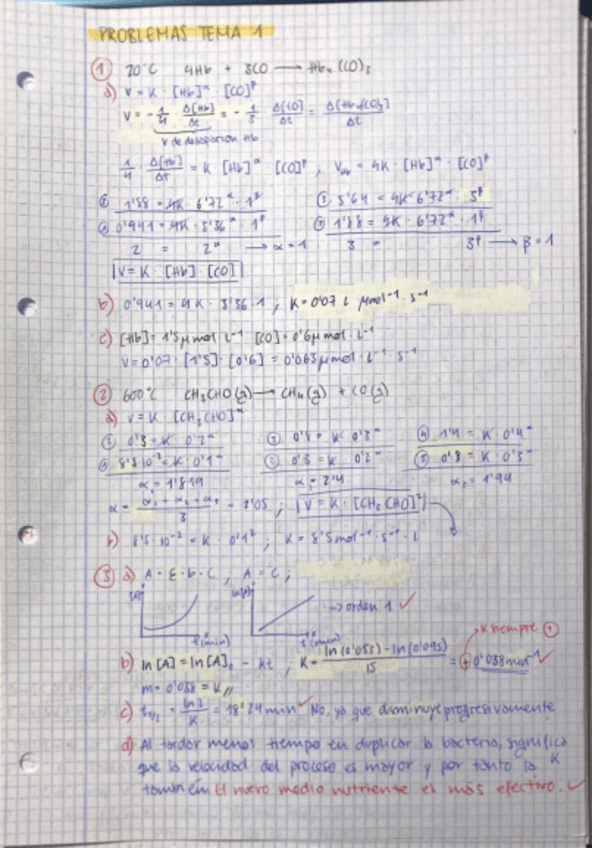 PROBLEMAS TEMA 1
① 20°C 4Hb + 3CO → Hb₄(CO)₃
a) V = K · [Hb]^α · [CO]^β
V = - 1/4 · Δ[Hb]/Δt = - 1/3 Δ[CO]/Δt = Δ[Hb₄(CO)₃]/Δt
V de desaparición Hb
1/4 · Δ[Hb]/Δt = K [Hb]^α [CO]^β , V = 4K · [Hb]^α · [CO]^β
1'88 = 4K · 6'72^α · 1^β 5'64 = 4K · 6'72^α · 3^β
0'941 = 4K · 3'36^α · 1^β 1'88 = 4K · 6'72^α · 1^β
2 = 2^α → α = 1 3 = 3^β → β = 1
V = K · [Hb] · [CO]
b) 0'941 = 4K · 3'36 · 1 ; K = 0'07 L μmol⁻¹ · s⁻¹
c) [Hb] = 1'5 μmol · L⁻¹ [CO] = 0'6 μmol · L⁻¹
V = 0'07 · [1'5] · [0'6] = 0'063 μmol · L⁻¹ · s⁻¹
② 600°C CH₃CHO(g) → CH₄(g) + CO(g)
a) V = K · [CH₃CHO]^α
0'3 = K · 0'2^α 0'8 = K · 0'3^α 1'4 = K · 0'4^α
8'5·10⁻² = K · 0'1^α 0'3 = K · 0'2^α 0'8 = K · 0'3^α
α = 1'819 α = 2'4 α = 1'94
α = α₁ + α₂ + α₃ / 3 = 2'05 ; V = K · [CH₃CHO]²
b) 8'5 · 10⁻² = K · 0'1² ; K = 8'5 mol⁻¹ · s⁻¹ · L
③ a) A = ε · b · C ; A = C ;
t (min) t (min) → orden 1 ✓
K siempre ⊕
b) ln [A] = ln [A]₀ - Kt ; K = ln(0'053) - ln(0'095) / 15 = ⊕ 0'038 min⁻¹ ✓
m = 0'038 = K
c) t₁/₂ = ln 2 / K = 18'24 min ✓ No, ya que disminuye progresivamente
d) Al tardar menos tiempo en duplicar la bacteria, significa
que la velocidad del proceso es mayor y por tanto la K
también. El nuevo medio nutriente es más efectivo. ✓